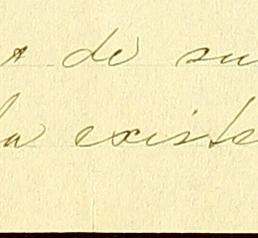 de su
la existe